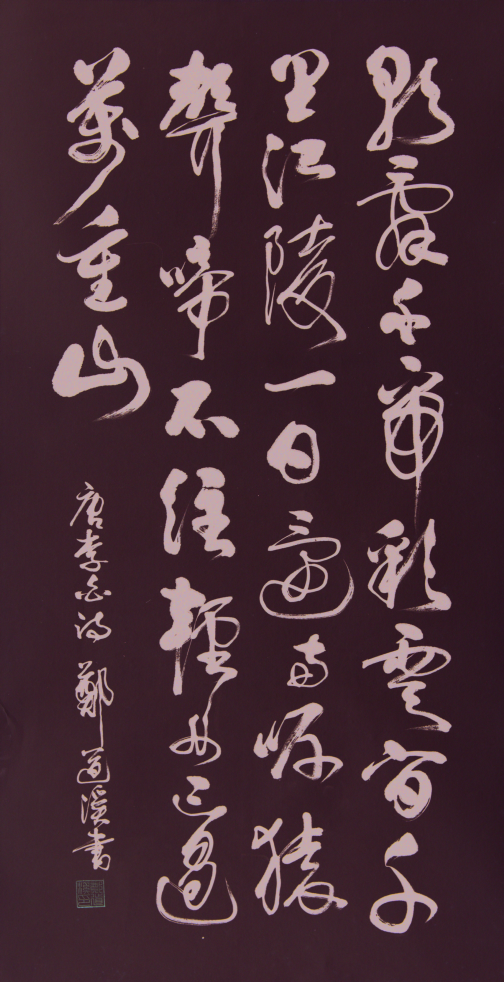 朝辭白帝彩雲間千
里江陵一日還兩岸猿
聲啼不住輕舟已過
萬重山
唐李白詩 鄭道溪書